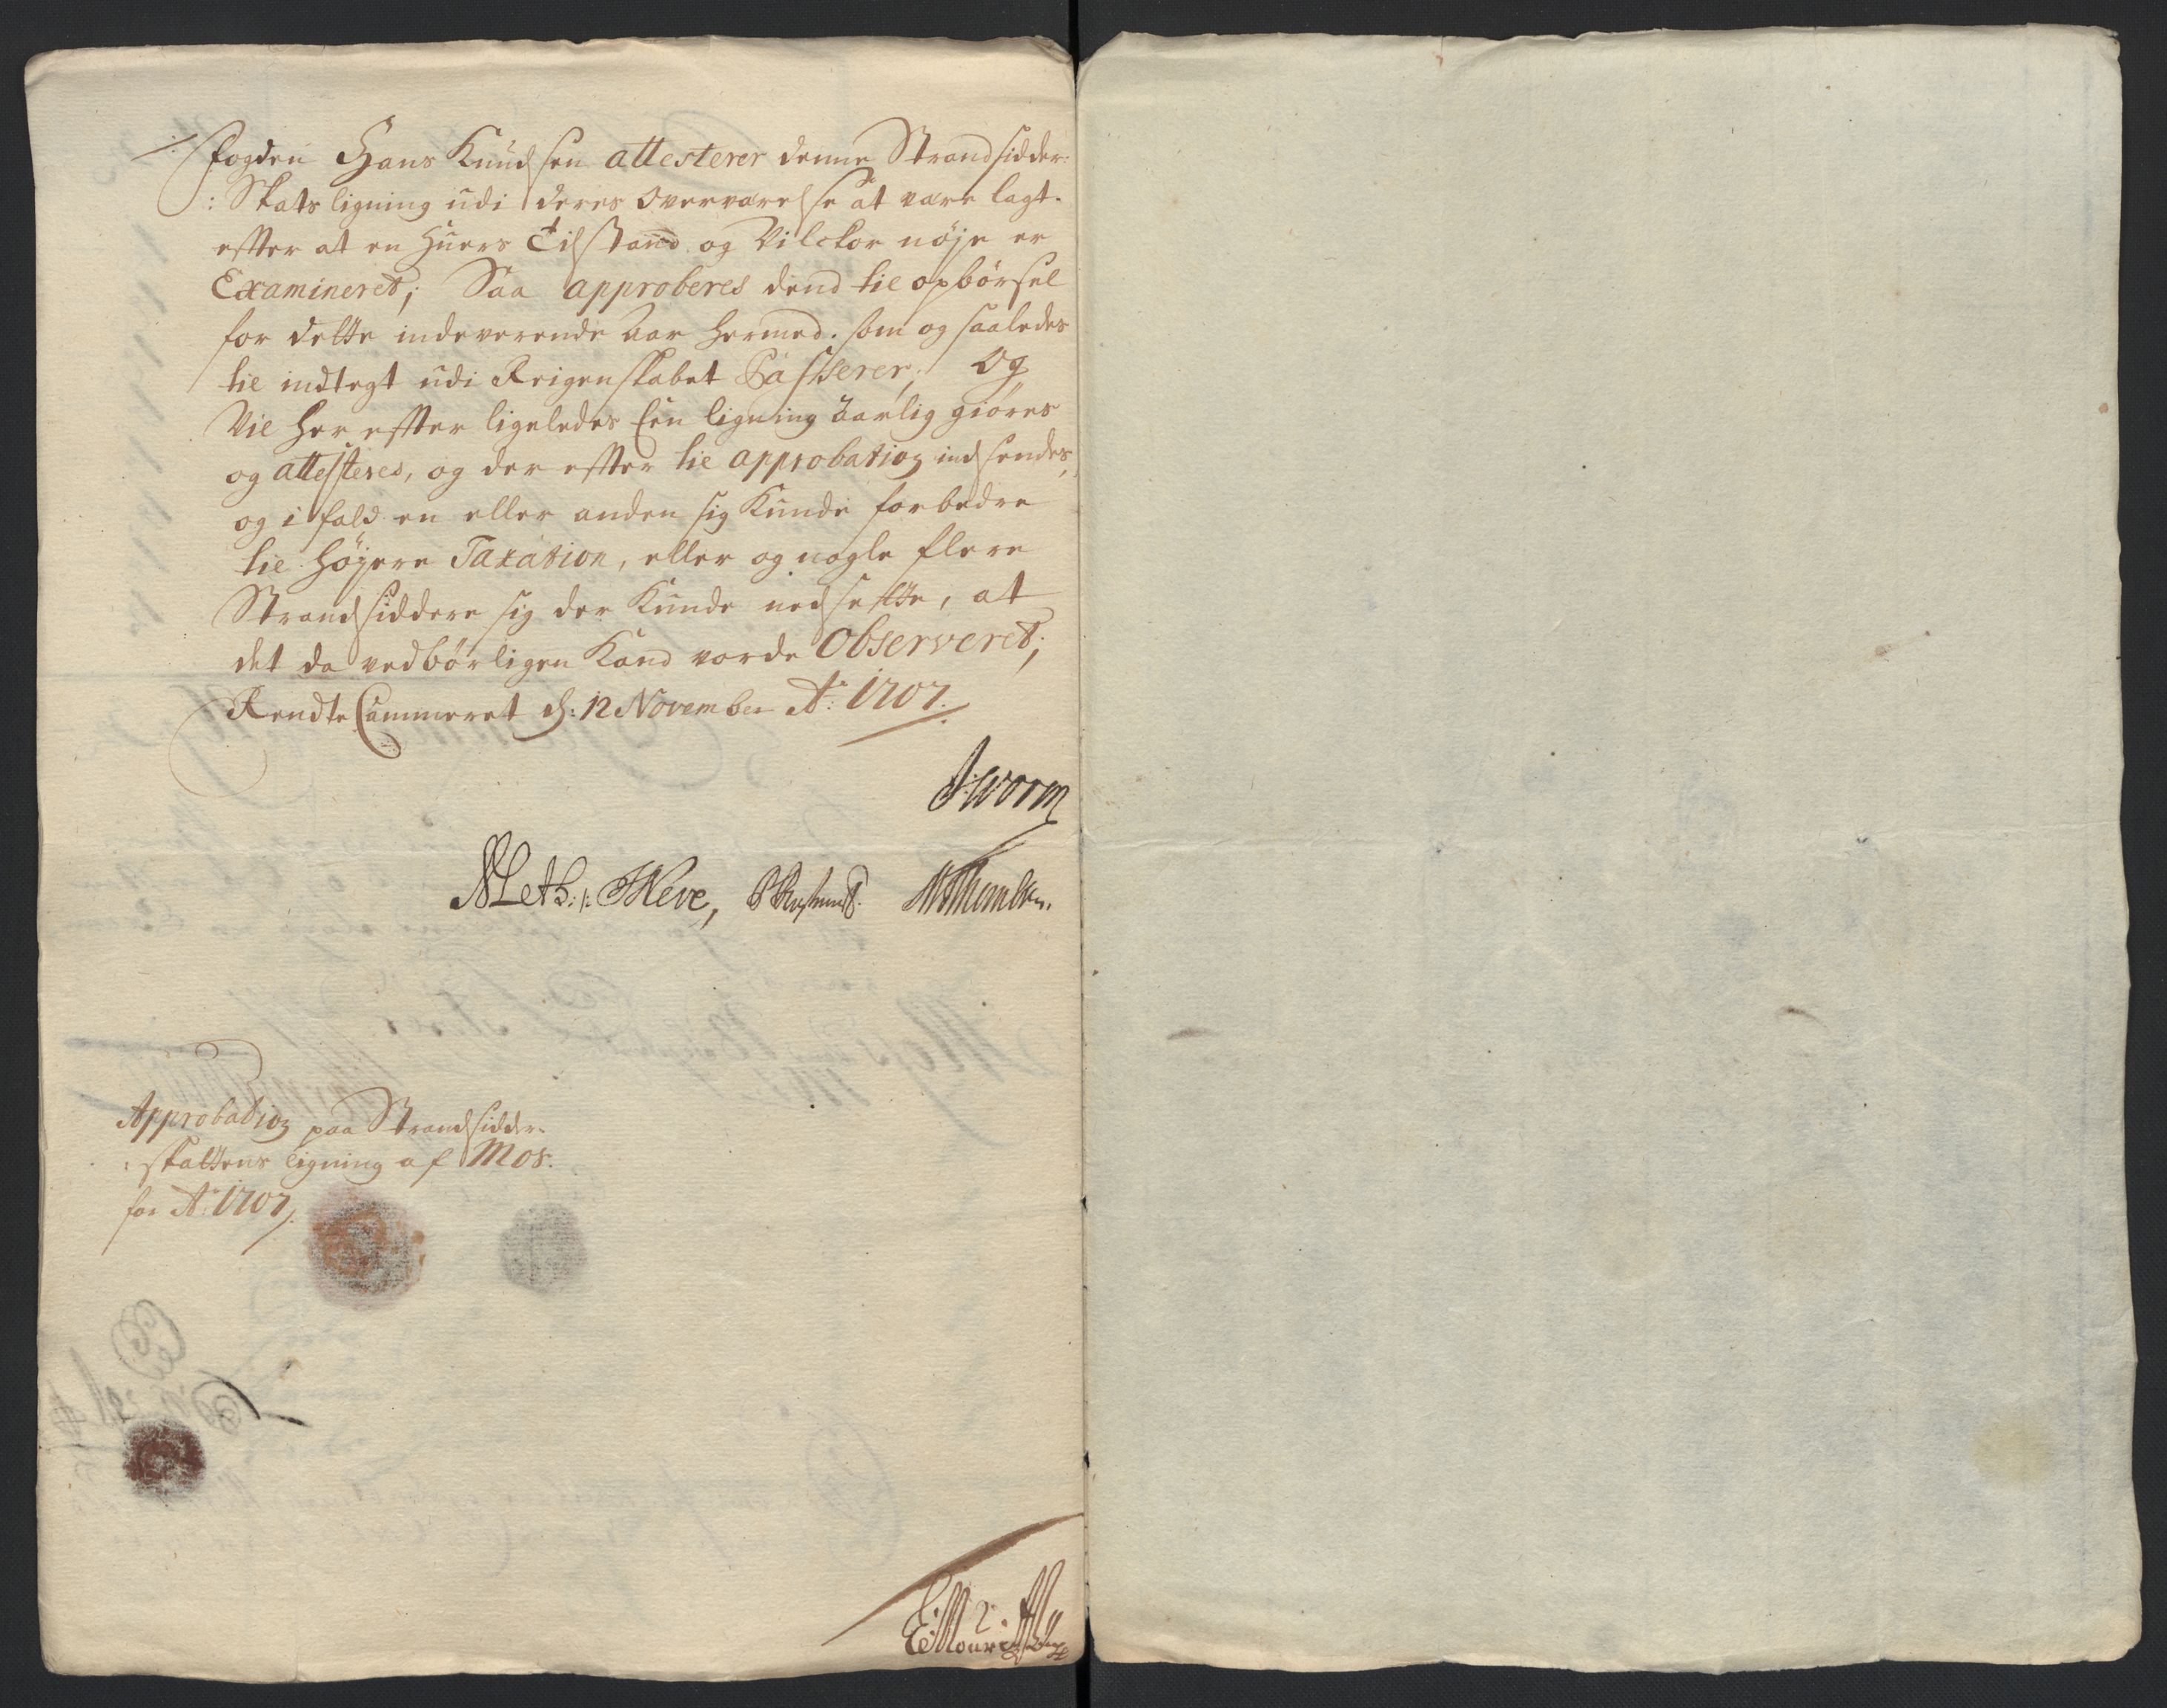 Fogden Hans Knudsen attesterer denne Strandsidder:
: Skats ligning udi deres Overværelse at være lagt.
effter at en huers Tilstand og Vilckor nøje er
Examineret; Saa approberes dend til opbørsel
for dette indeværende aar hermed. som og saaledes
til indtegt udi Reigenskabet Passerer; Og
Vil her effter ligeledes Een ligning aarlig giøres
og attesteres, og der effter til approbation indsendes,
og i fald en eller anden sig Kunde forbedre
til højere Taxation, eller og nogle flere
Strandsiddere sig der Kunde nedsette, at
det da vedbørligen Kand vorde Observeret;
Rendte Cammeret d: 12 November Ao: 1707.
J: Worm
Neve,
Approbation paa Strandsidder-
: skattens ligning af Mos.
for Ao: 1707.
2.